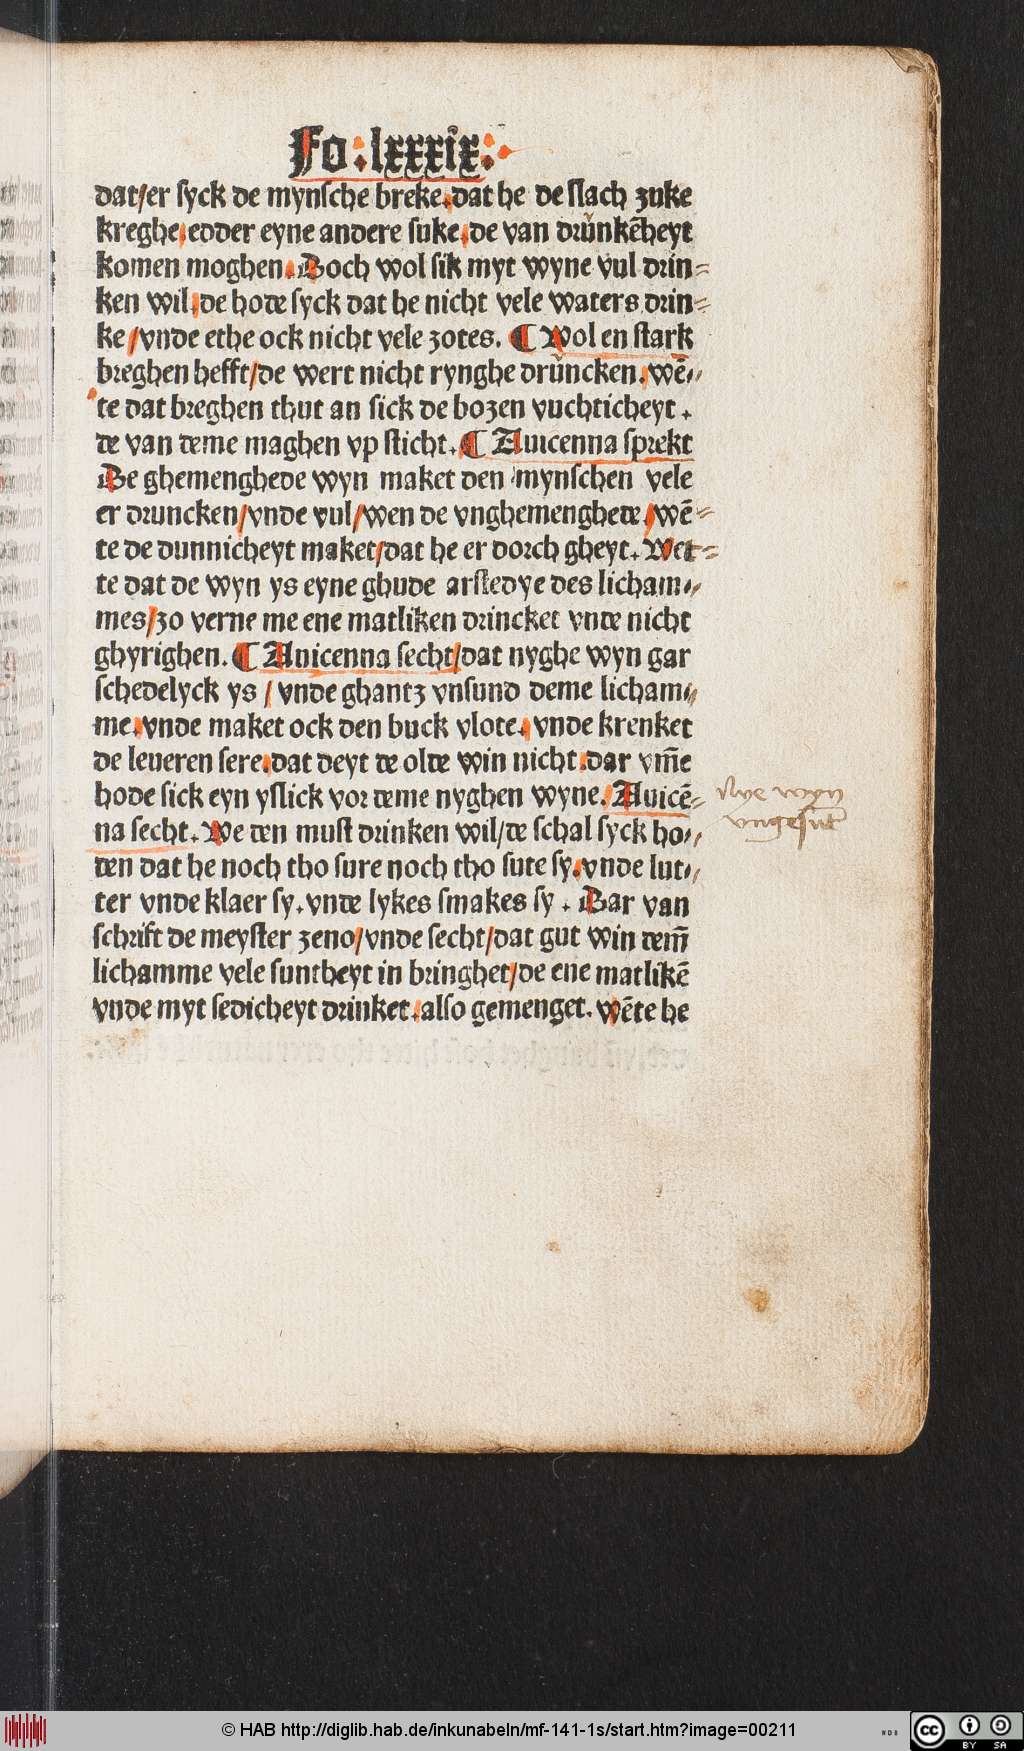 Fo: lxxxix:
dat/er syck de mynsche breke.dat he de slach zuke
kreghe.edder eyne andere suke.de van drůnkēheyt
komen moghen. Doch wol sik myt wyne vul drin⸗
ken wil.de hode syck dat he nicht vele waters drin⸗
ke/vnde ethe ock nicht vele zotes. ¶ Wol en stark
breghen hefft/de wert nicht rynghe drůncken.wē⸗
te dat breghen thut an sick de bozen vuchticheyt.
de van deme maghen vp sticht. ¶ Auicenna sprekt
De ghemenghede wyn maket den mynschen vele
er druncken/vnde vul/wen de vnghemenghede/wē⸗
te de dunnicheyt maket/dat he er dorch gheyt. Wet⸗
te dat de wyn ys eyne ghude arstedye des licham⸗
mes/zo verne me ene matliken drincket vnde nicht
ghyrighen. ¶ Auicenna secht/dat nyghe wyn gar
schedelyck ys/vnde ghantz vnsund deme licham⸗
me.vnde maket ock den buck vlote.vnde krenket
de leueren sere.dat deyt de olde win nicht.dar vm̄e
hode sick eyn yslick vor deme nyghen wyne. Auicē⸗
na secht. We den must drinken wil/de schal syck ho⸗
den dat he noch tho sure noch tho sute sy.vnde lut⸗
ter vnde klaer sy.vnde lykes smakes sy. Dar van
schrift de meyster zeno/vnde secht/dat gut win dem̄
lichamme vele suntheyt in bringhet/de ene matlikē
vnde myt sedicheyt drinket.also gemenget. wēte he
Nye wyn
vngesut
© HAB http://diglib.hab.de/inkunabeln/mf-141-1s/start.htm?image=00211
WDB
cc BY SA